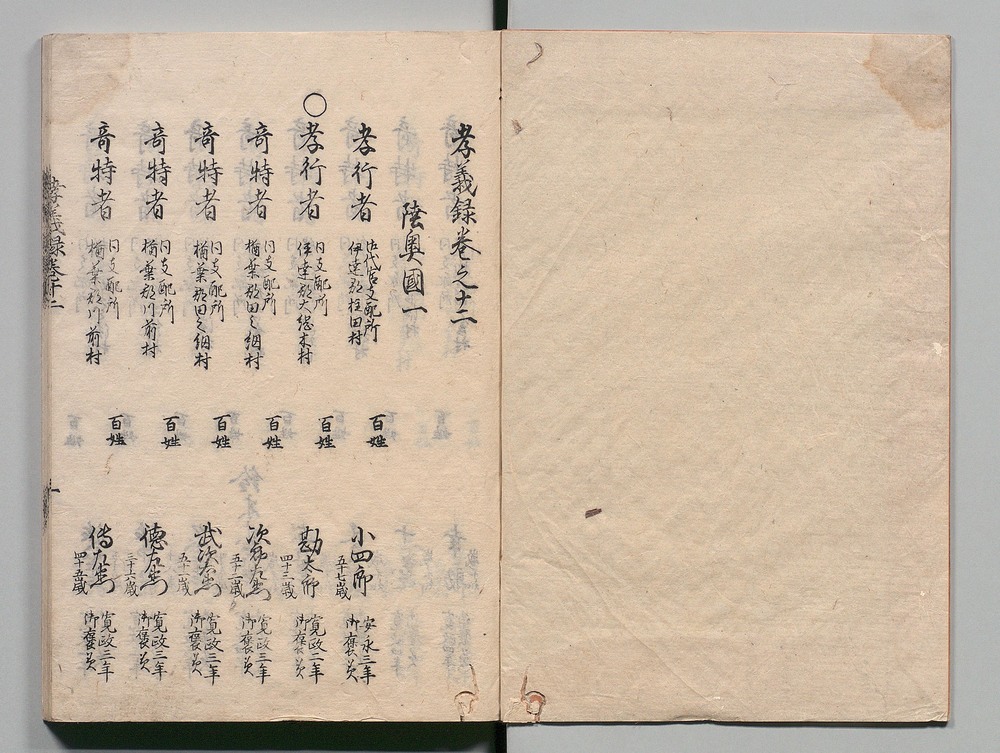 孝義録巻之十二
陸奥國一
孝行者 御代官支配所 伊達郡柱田村 百姓 小四郎 五十七歳 安永三年 御褒美
〇孝行者 同支配所 伊達郡大綱木村 百姓 勘太郎 四十三歳 寛政二年 御褒美
竒特者 同支配所 楢葉郡田之網村 百姓 次郎左衛門 寛政三年 御褒美
竒特者 同支配所 楢葉郡田之網村 百姓 武次右衛門 寛政三年 御褒美
竒特者 同支配所 楢葉郡川前村 百姓 徳左衛門 三十六歳 寛政三年 御褒美
竒特者 同支配所 楢葉郡川前村 百姓 傳左衛門 四十五歳 寛政三年 御褒美
孝義録巻十二
一